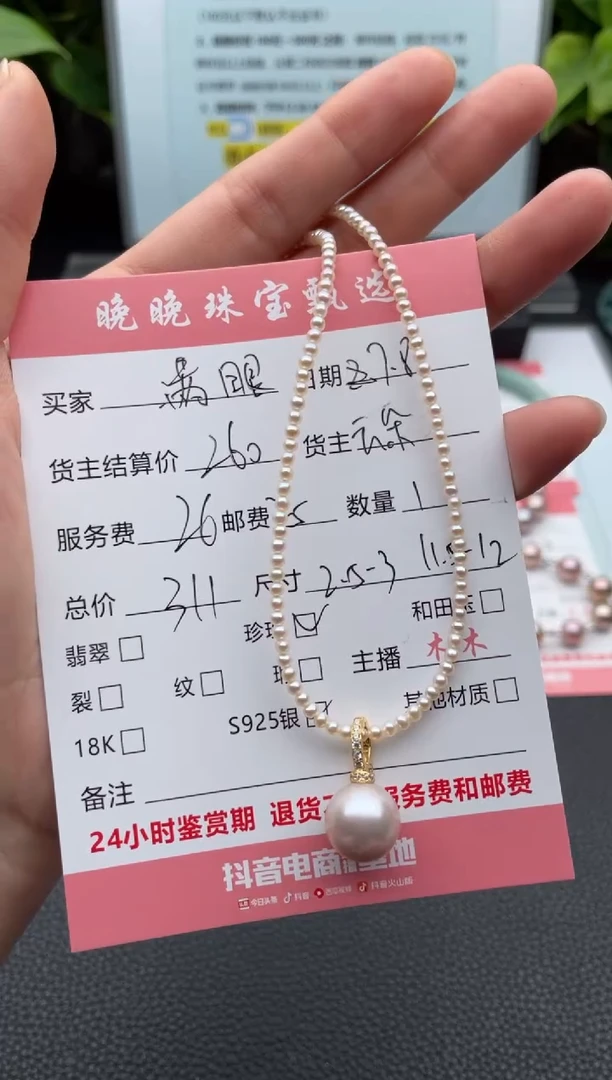 晚晚珠宝甄选
买家 满眼 日期 27.8
货主结算价 260 货主
服务费 26 邮费 25 数量 1
总价 311 尺寸 2.5-3 11.5-12
翡翠 珍珠 和田玉
裂 纹 主播 木木
18K S925银 其他材质
备注
24小时鉴赏期 退货 服务费和邮费
抖音电商 基地
今日头条 抖音 西瓜视频 抖音火山版